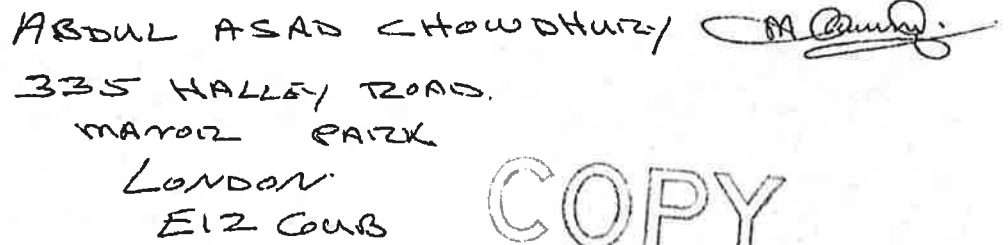 ABDUL ASAD CHOWDHURY
335 HALLEY ROAD.
MANOR PARK
LONDON.
E12
COPY